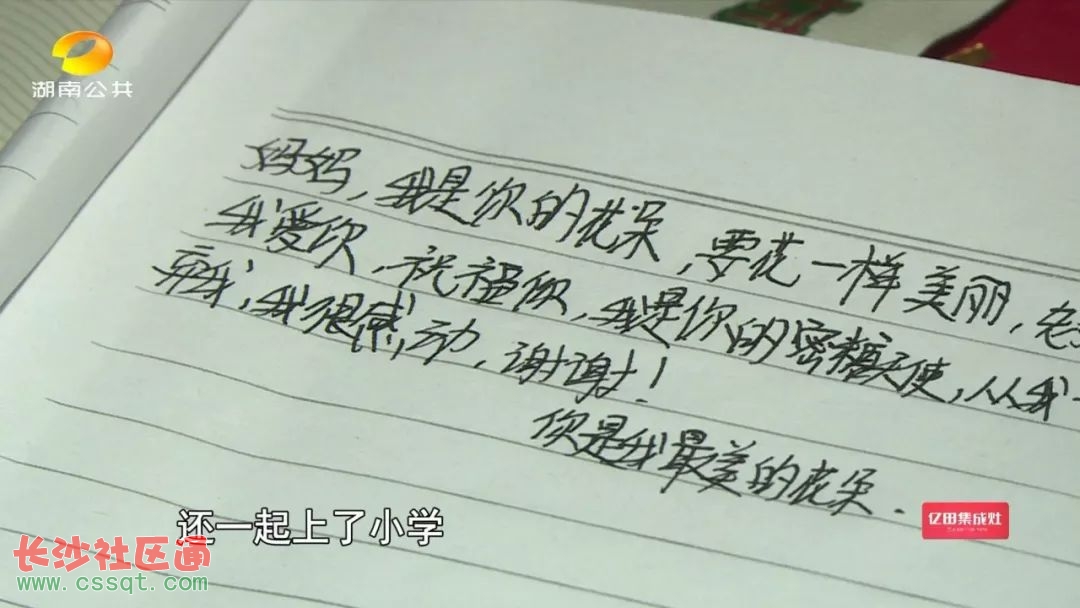 湖南公共
妈妈，我是你的花朵，要花一样美丽，
我爱你，祝福你，我是你的密糖天使，从我
弃我，我很感动，谢谢！
你是我最美的花朵．
亿田集成灶
还一起上了小学
长沙社区通
www.cssqt.com